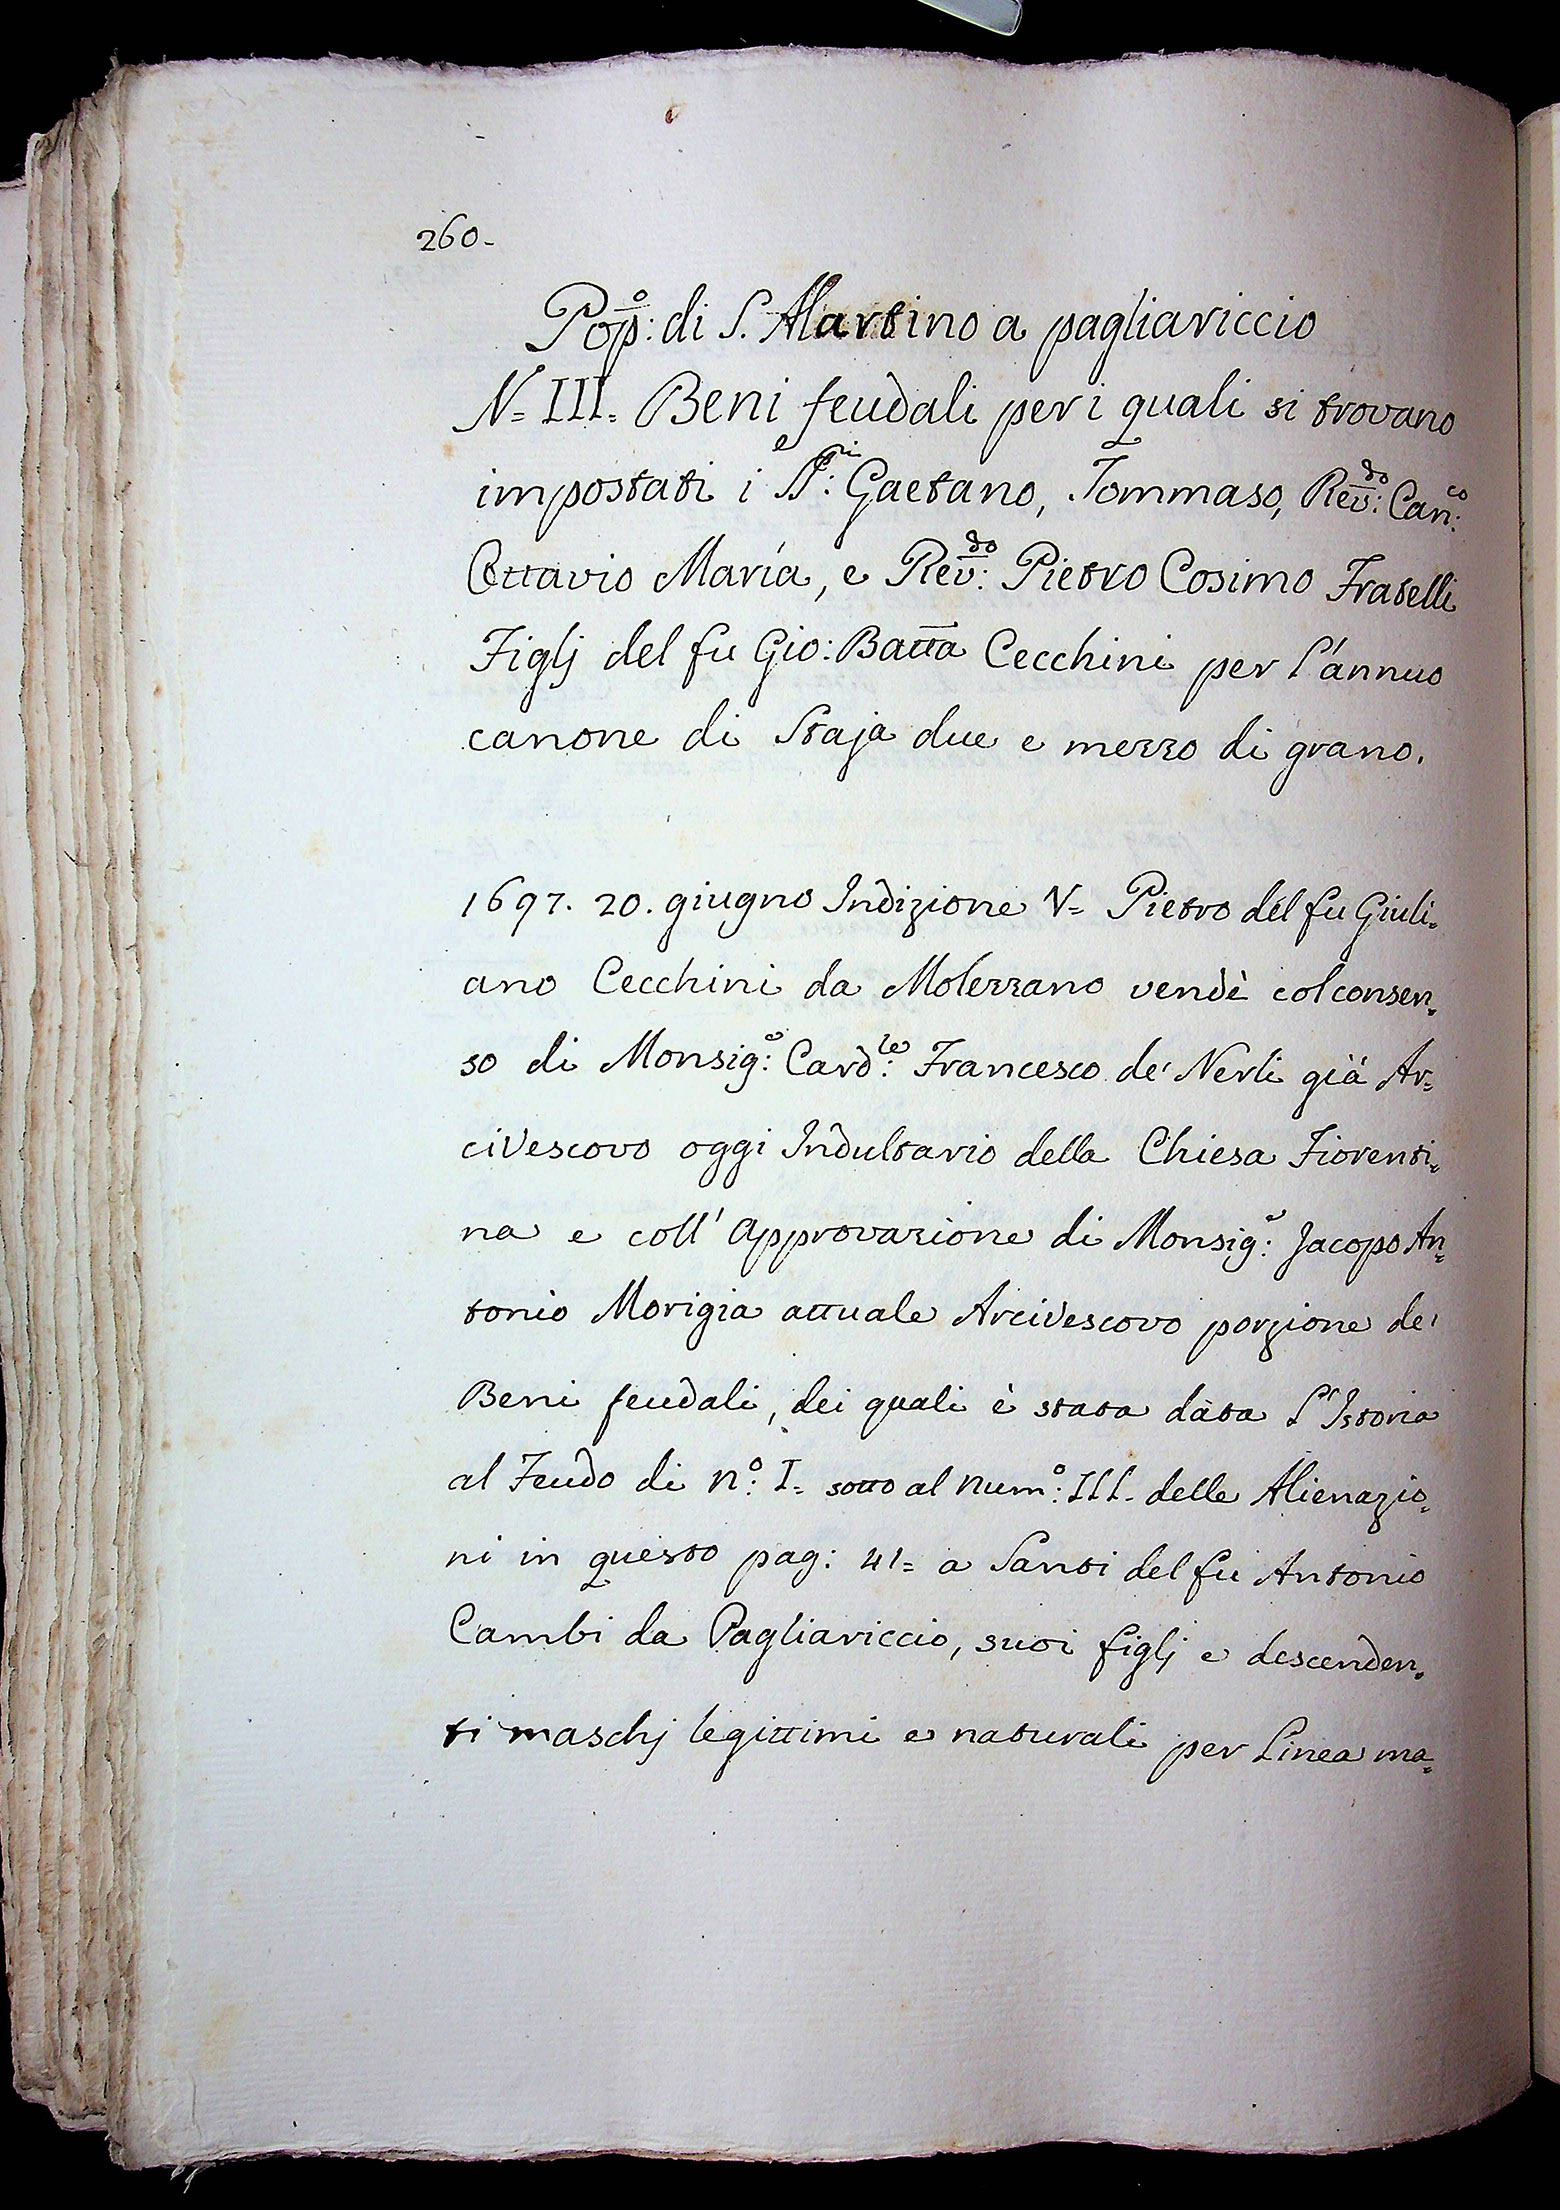 260.
Pop:º di S. Martino a pagliariccio
N= III= Beni feudali per i quali si trovano
impostati i SS:ri Gaetano, Tommaso, Rev:do Can:co
Ottavio Maria, e Rev:do Pietro Cosimo Fratelli
Figlj del fu Gio: Batta Cecchini per l'annuo
canone di Staja due e mezzo di grano.
1697. 20. giugno Indizione V= Pietro del fu Giuli=
ano Cecchini da Molezzano vendè col consen=
so di Monsig:e Card:le Francesco de' Nerli già Ar=
civescovo oggi Indultario della Chiesa Fiorenti=
na e coll' approvazione di Monsig:e Jacopo An=
tonio Morigia attuale Arcivescovo porzione de'
Beni feudali, dei quali è stata data l'Istoria
al Feudo di n:º I= sotto al num:º III= delle Alienazio=
ni in questo pag: 41= a Santi del fu Antonio
Cambi da Pagliariccio, suoi figlj e descenden=
ti maschj legittimi e naturali per Linea ma=